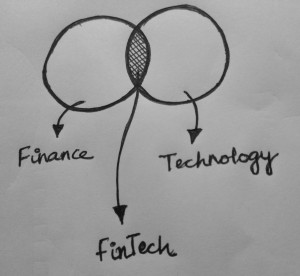 Finance
Technology
FinTech